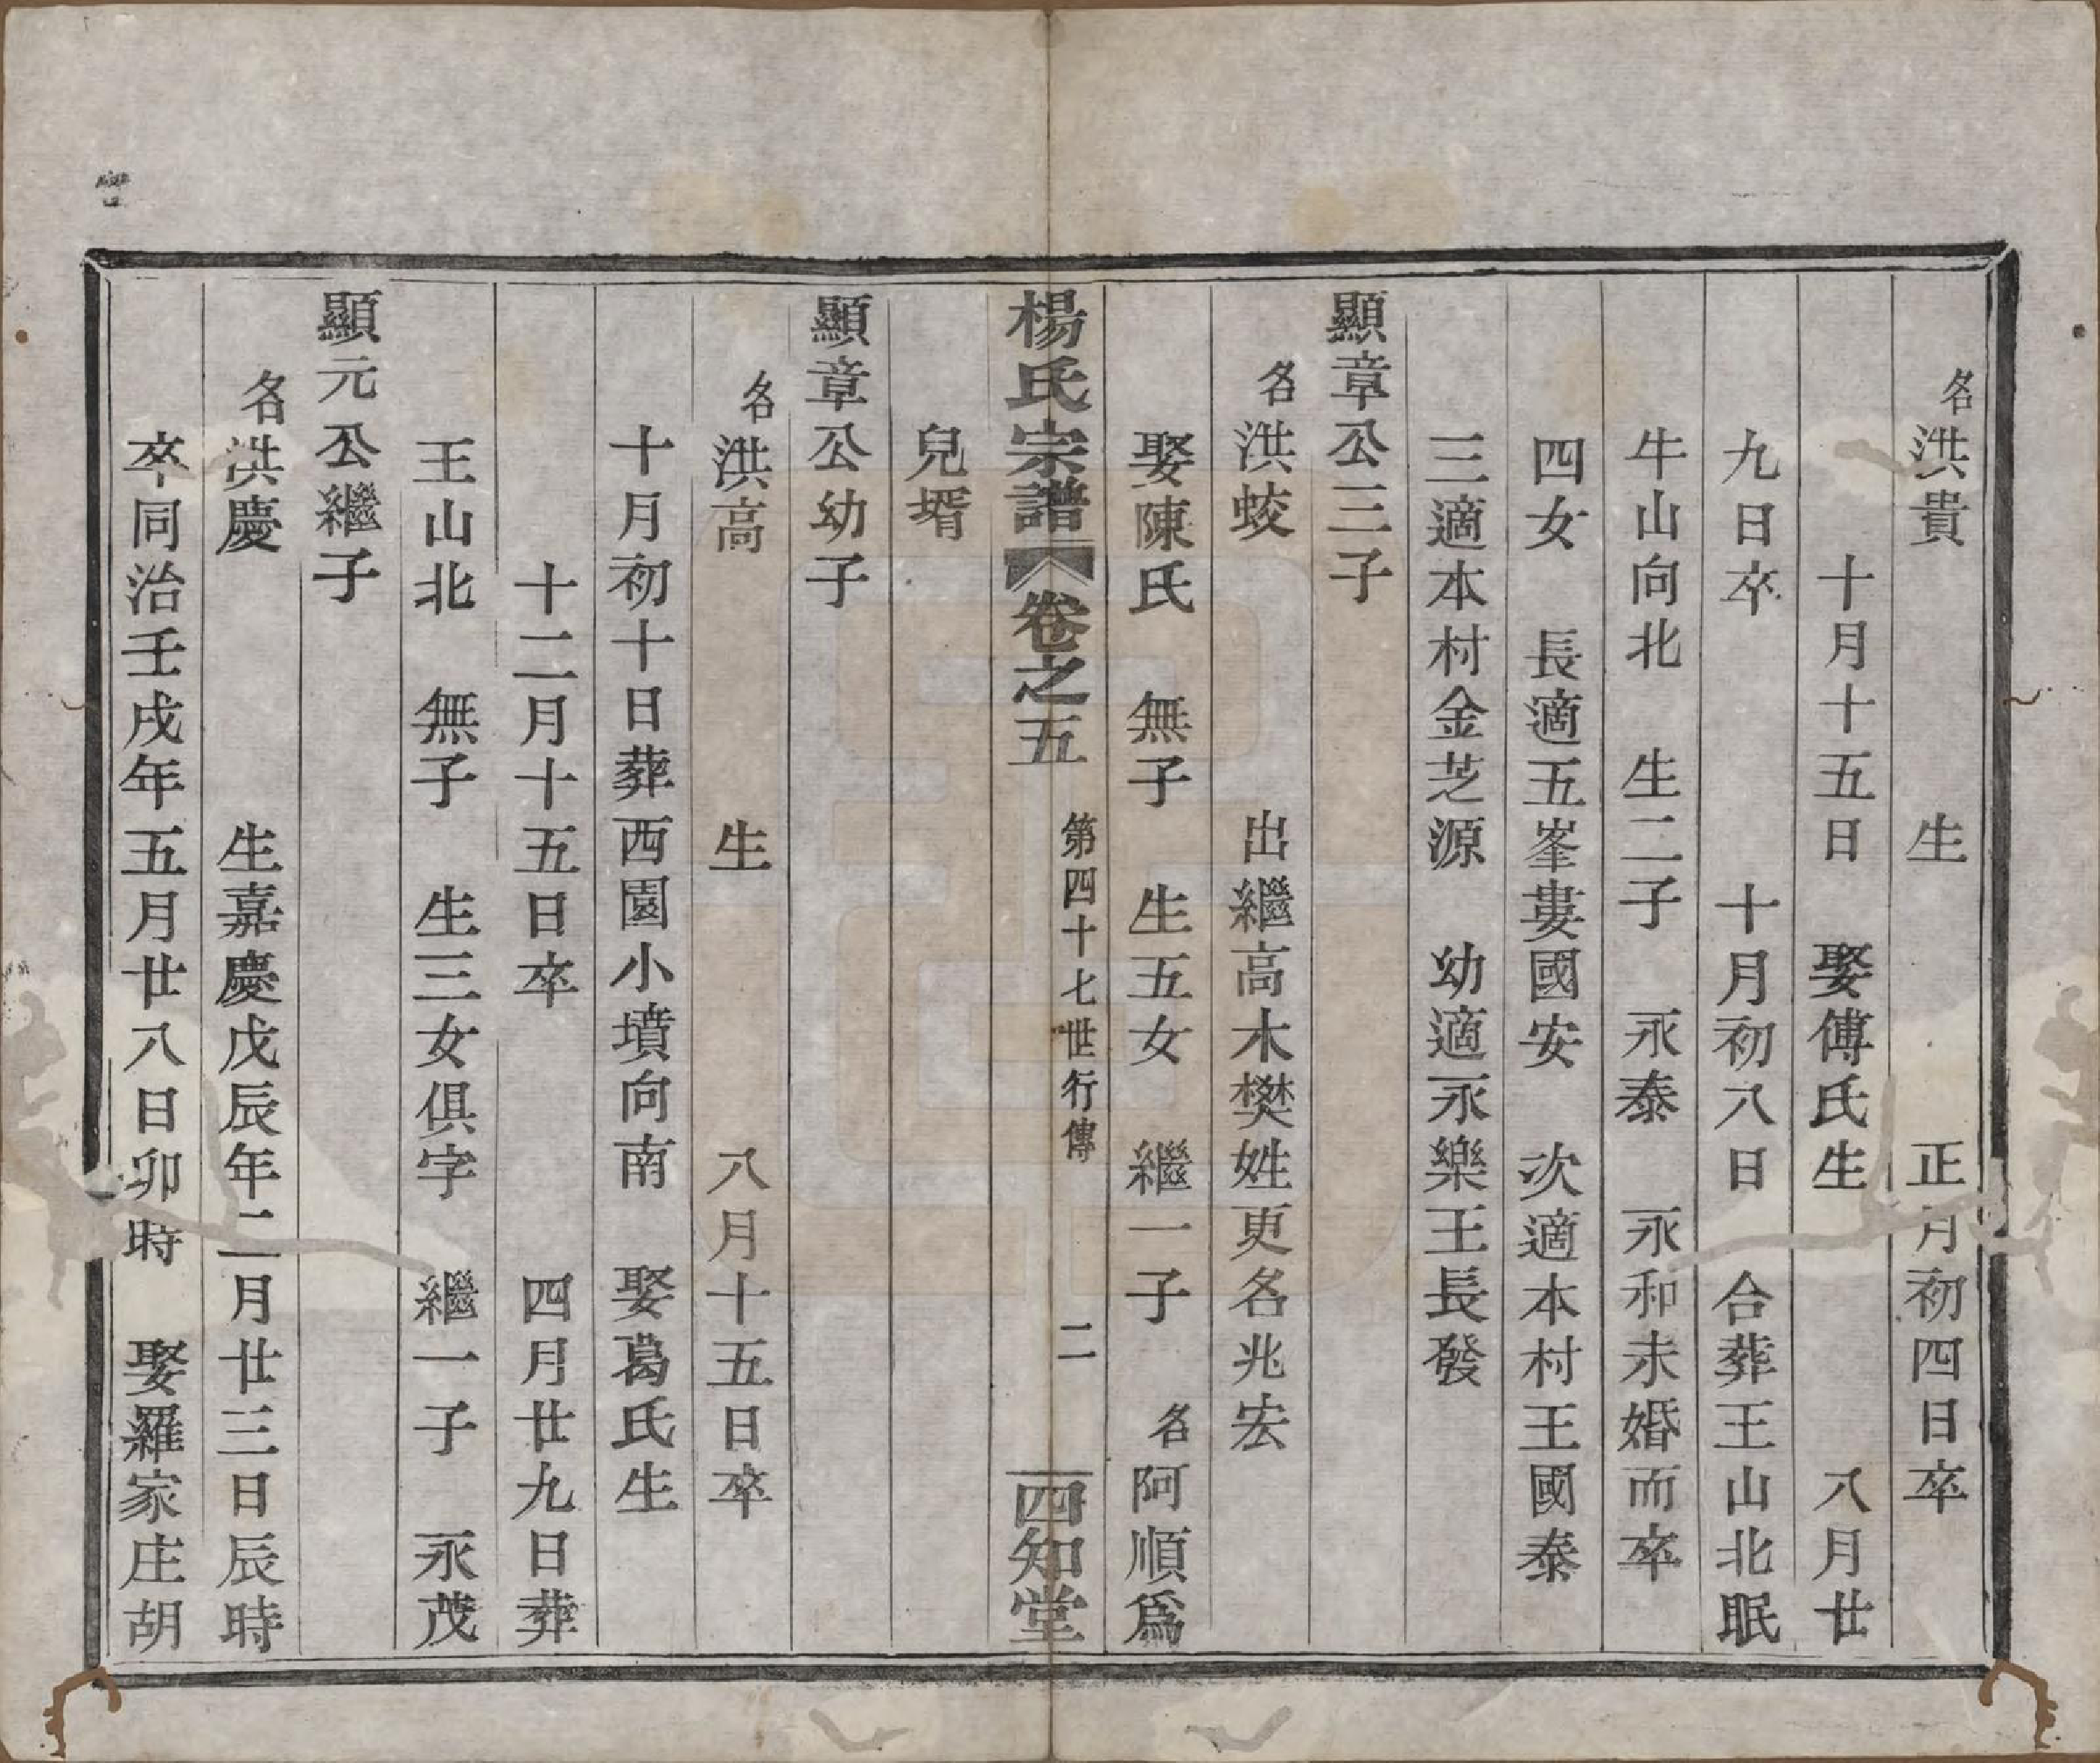 名洪貴　生　正月初四日卒
十月十五日　娶傅氏生　八月廿
九日卒　十月初八日　合葬王山北眠
牛山向北　生二子　永泰　永和未婚而卒
四女　長適五峯婁國安　次適本村王國泰
三適本村金芝源　幼適永樂王長發
顯章公三子
名洪蛟　出繼高木樊姓更名兆宏
娶陳氏　無子　生五女　繼一子　名阿順爲
楊氏宗譜　卷之五　第四十七世行傳　二　四知堂
兒壻
顯章公幼子
名洪高　生　八月十五日卒
十月初十日葬西園小墳向南　娶葛氏生
十二月十五日卒　四月廿九日葬
王山北　無子　生三女俱字　繼一子　永茂
顯元公繼子
名洪慶　生嘉慶戊辰年二月廿三日辰時
卒同治壬戌年五月廿八日卯時　娶羅家庄胡